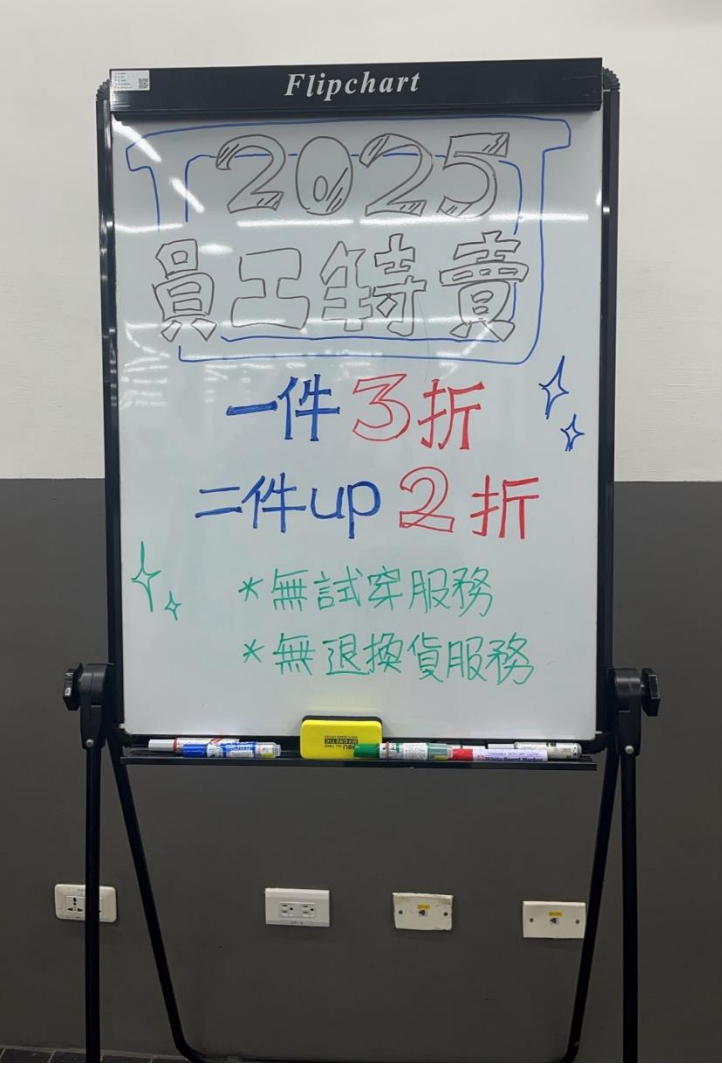 Flipchart
2025
員工特賣
一件3折
二件up 2折
*無試穿服務
*無退換貨服務